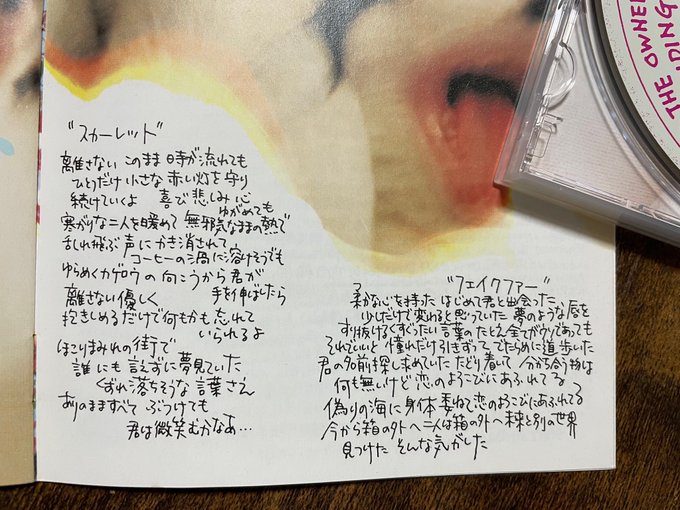 "スカーレット"
離さない このまま 時が流れても
ひとつだけ 小さな 赤い灯を 守り
続けていくよ 喜び 悲しみ 心
ゆがめても
寒がりな二人を暖めて 無邪気なままの熱で
乱れ飛ぶ声に かき消されて
コーヒーの渦に溶けそうでも
ゆらめくカゲロウの向こうから君が
手を伸ばしたら
離さない優しく
抱きしめるだけで何もかも忘れて
いられるよ
ほこりまみれの街で
誰にも言えずに夢見ていた
くずれ落ちそうな言葉さえ
ありのますべて ぶつけても
君は微笑むかなあ…
"フェイクファー"
柔かな心を持った はじめて君と出会った
少しだけで変わると思っていた 夢のような唇を
すり抜けるくすぐったい言葉の たとえ全てがウソであっても
それでいいと 憧れだけ引きずって でたらめに道歩いた
君の名前探し求めていた たどり着いて 分かち合う物は
何も無いけど 恋のよろこびにあふれてる
偽りの海に身体委ねて恋のよろこびにあふれてる
今から箱の外へ二人は箱の外へ未来と別の世界
見つけた そんな気がした
THE OWNE